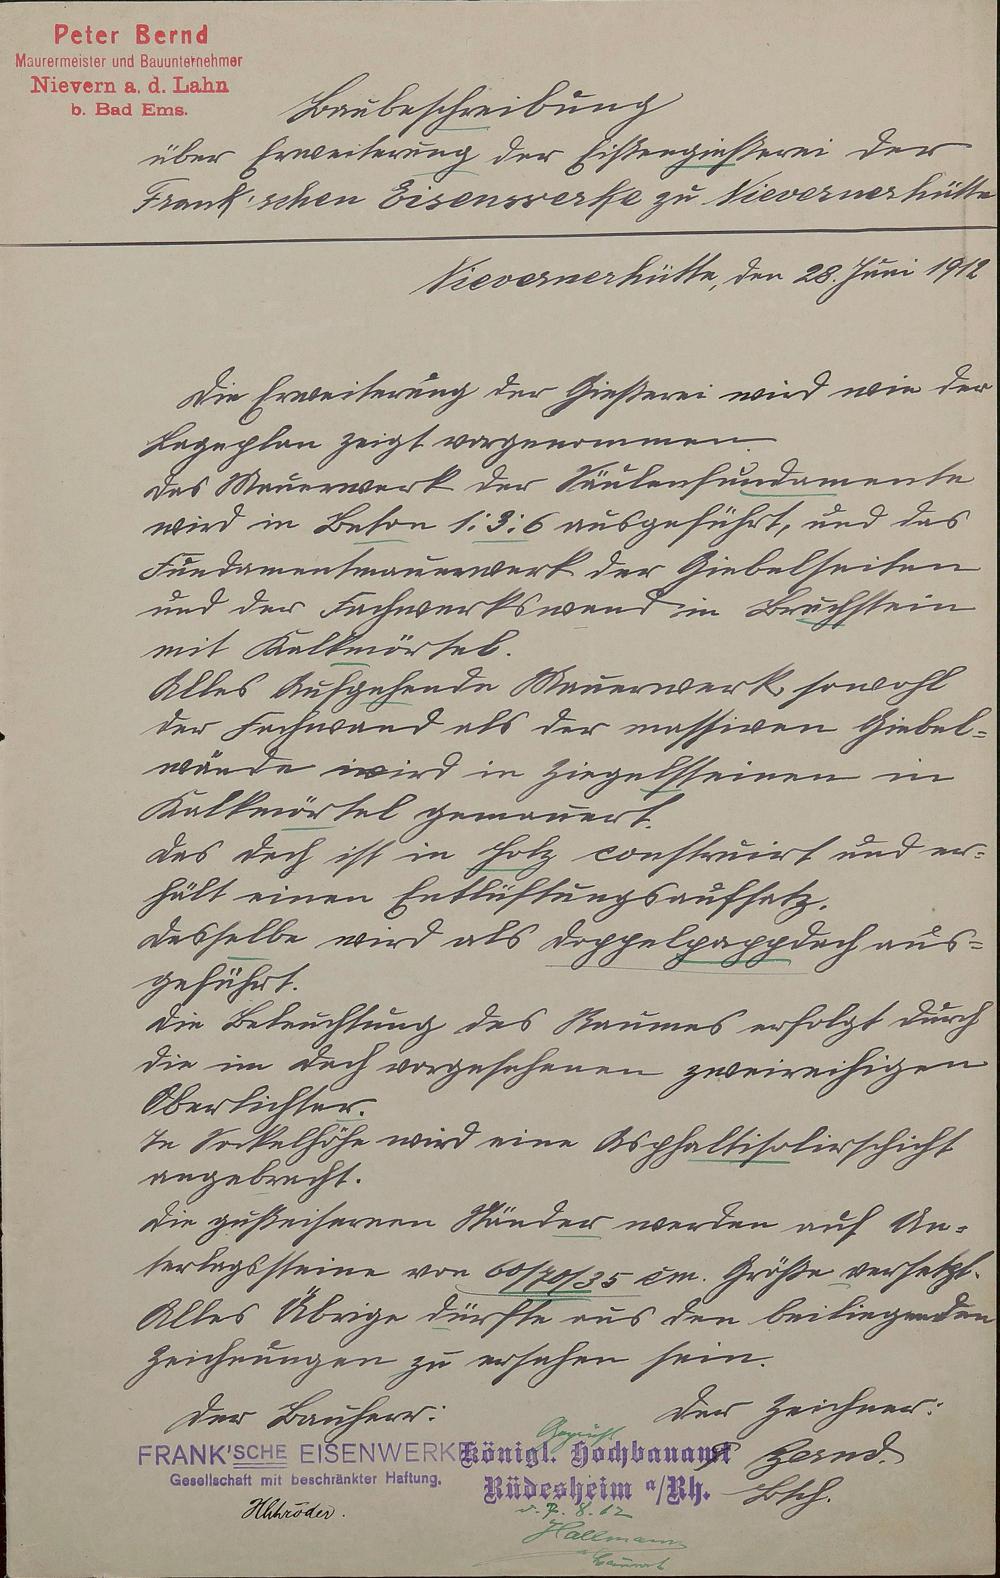 Peter Bernd
Maurermeister und Bauunternehmer
Nievern a. d. Lahn
b. Bad Ems.
Baubeschreibung
über Erweiterung der Eißengießerei der
Frank'schen Eisenwerke zu Nievernerhütte
Nievernerhütte, den 28. Juni 1912
Die Erweiterung der Gießerei wird wie der
Lageplan zeigt vorgenommen
Das Mauerwerk der Säulenfundamente
wird in Beton 1:3:6 ausgeführt, und das
Fundamentmauerwerk der Giebelseiten
und der Fachwerkswand in Bruchstein
mit Kalkmörtel.
Alles Aufgehende Mauerwerk, sowohl
der Fachwand als der massiven Giebel-
wände wird in Ziegelsteinen in
Kalkmörtel gemauert.
Das Dach ist in Holz construirt und er-
hält einen Entlüftungsaufsatz.
Desselbe wird als Doppelpappdach aus-
geführt.
Die Beleuchtung des Raumes erfolgt durch
die im Dach vorgesehenen zweireihigen
Oberlichter.
In Sockelhöhe wird eine Asphaltisolirschicht
angebracht.
Die gußeisernen Ständer werden auf Un-
terlagssteine von 60/70/35 cm. Größe versetzt.
Alles Übrige dürfte aus den beiliegenden
Zeichnungen zu ersehen sein.
Der Bauherr:
Der Zeichner:
FRANK'SCHE EISENWERKE
Gesellschaft mit beschränkter Haftung.
Geprüft
Königl. Hochbauamt
Rüdesheim a/Rh.
Bernd.
Bsch.
Hallmann
Baurat